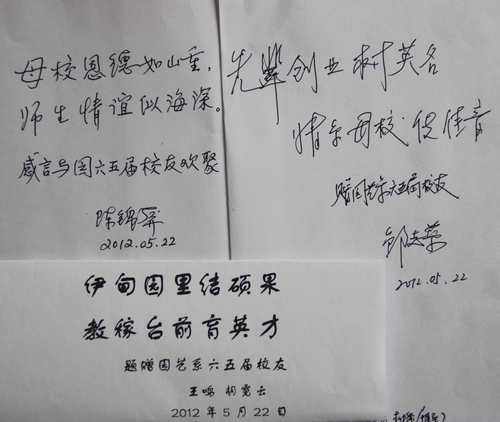 母校恩德如山重，
师生情谊似海深。
感言与园六五届校友欢聚
陈锦屏
2012.05.22
先辈创业树英名
情系母校促佳音
赠园艺系六五届校友
邹志荣
2012.05.22
伊甸园里结硕果
教稼台前育英才
题赠园艺系六五届校友
王鸣 胡霓云
2012年5月22日